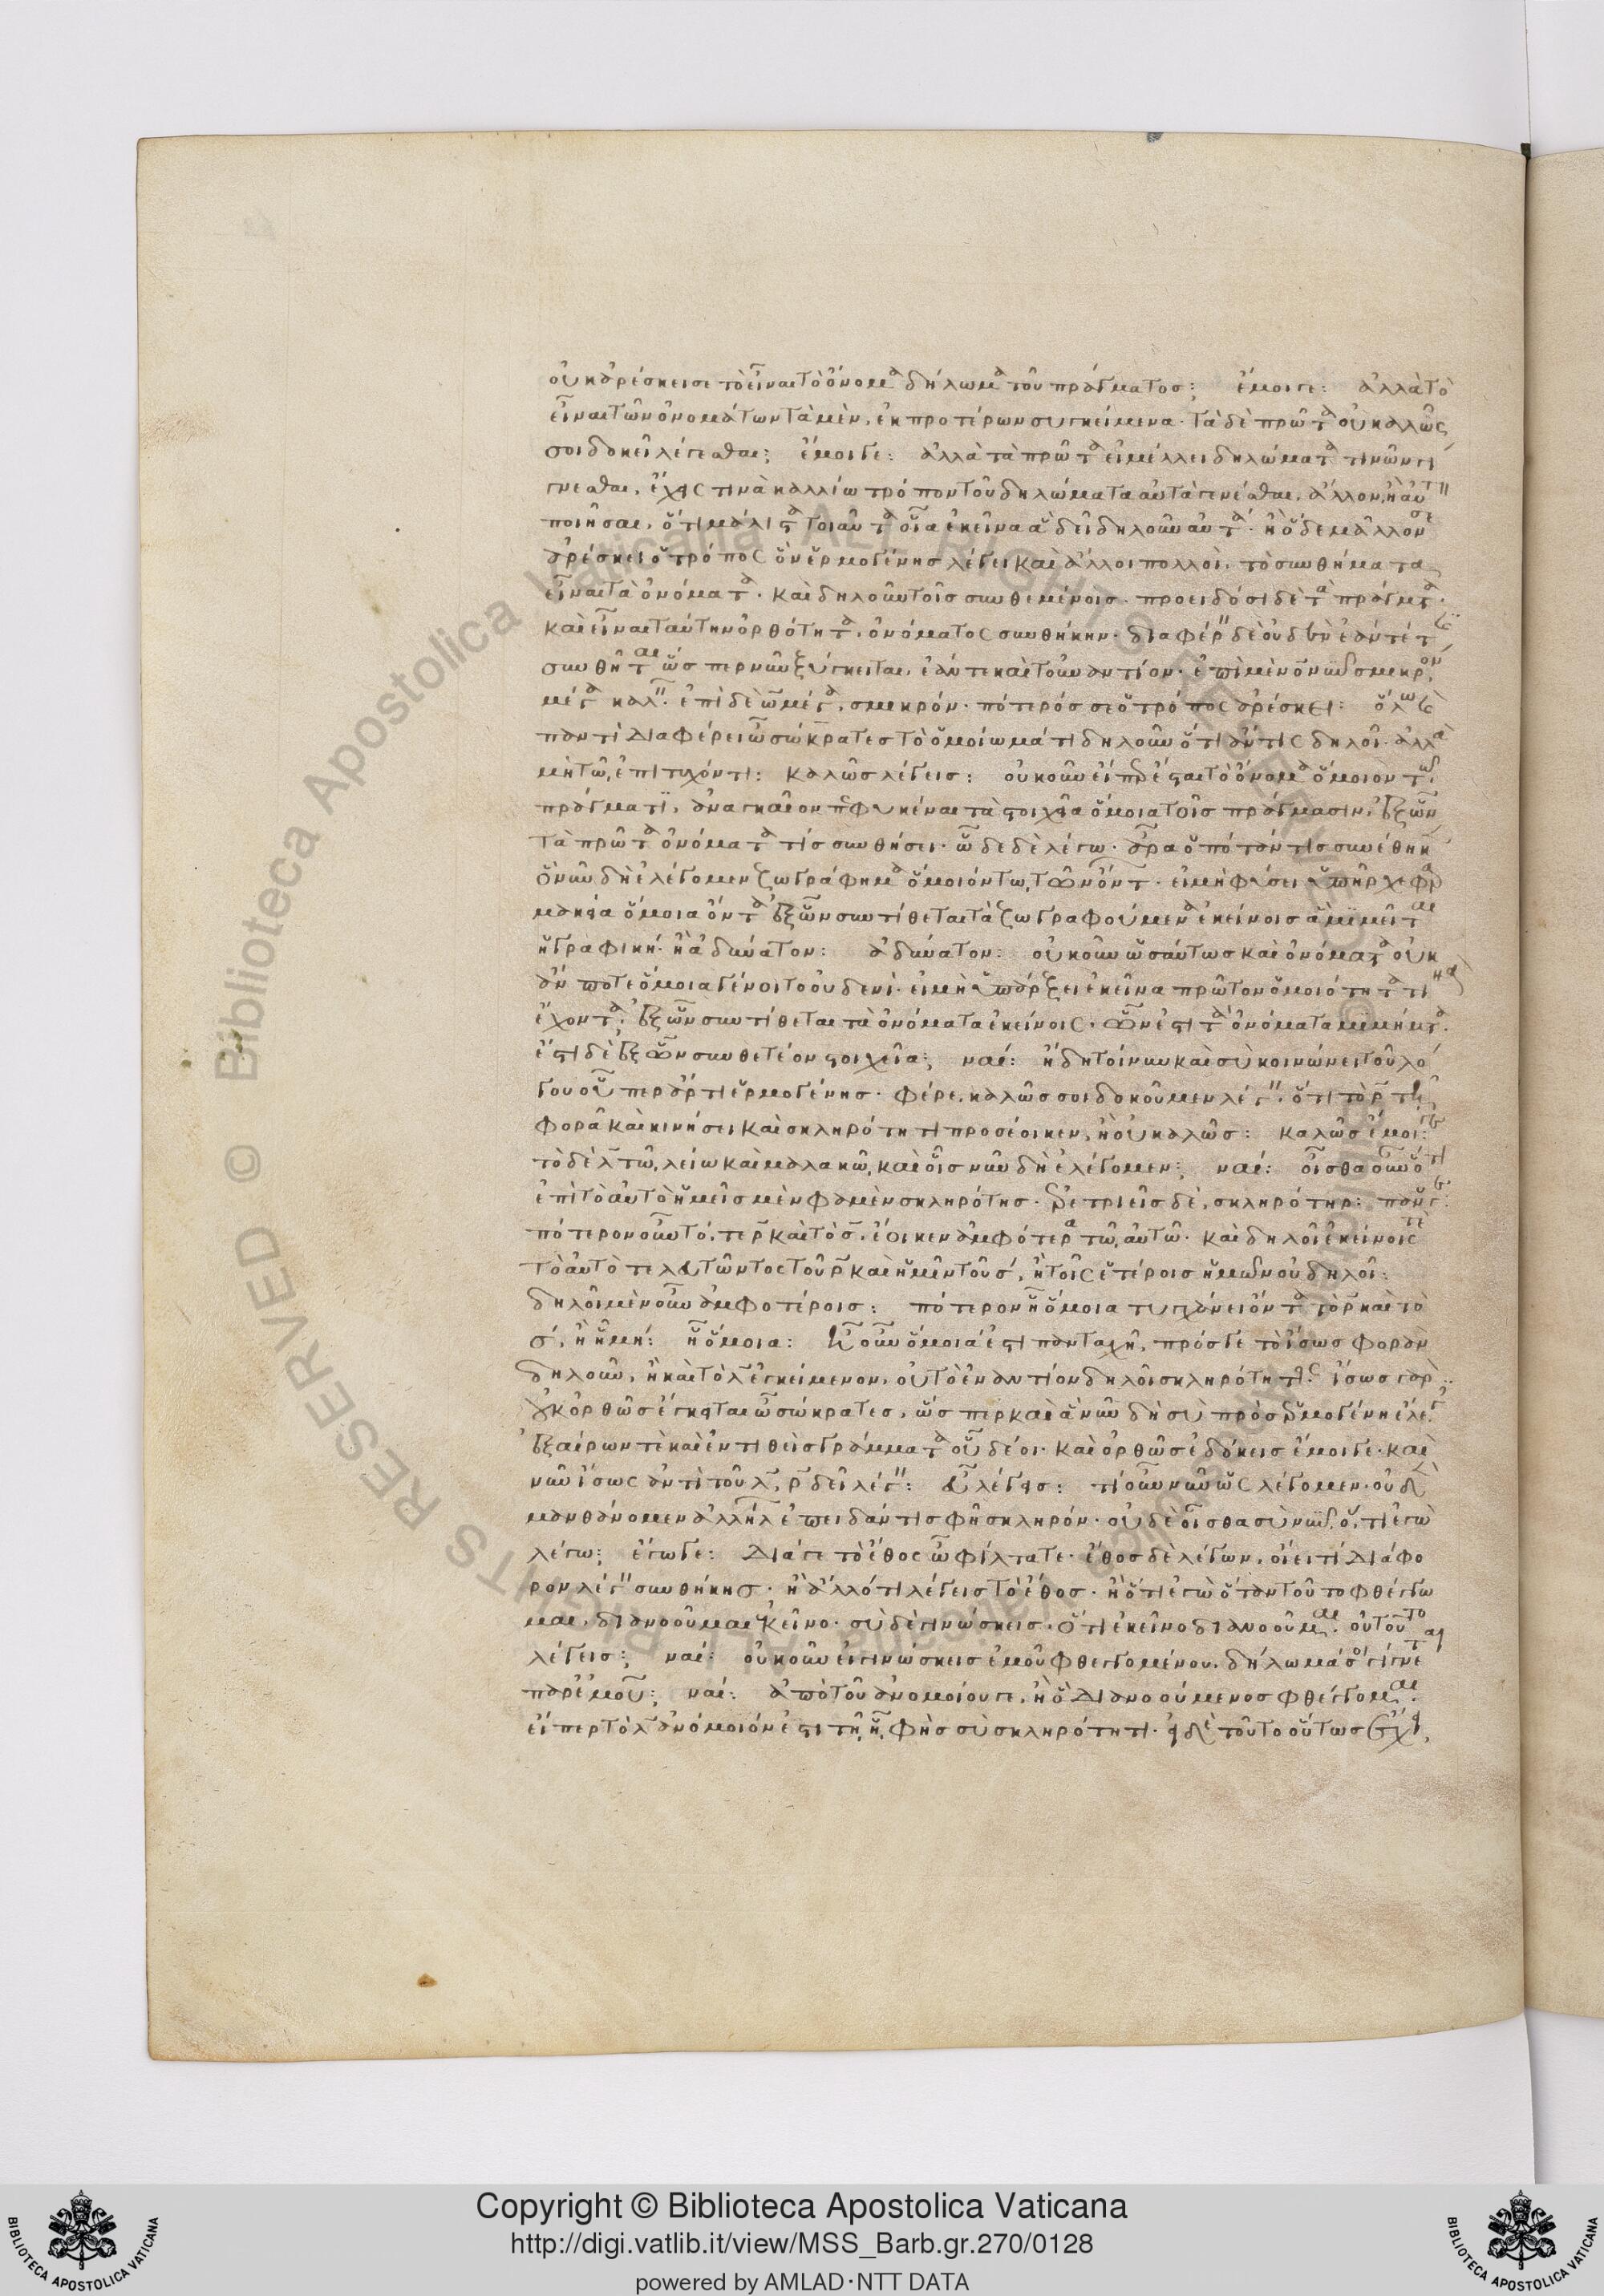 οὐκ ἀρέσκει σε τὸ εἶναι τὸ ὄνομα δήλωμα τοῦ πράγματος; ἔμοιγε: ἀλλὰ τὸ
εἶναι τῶν ὀνομάτων τὰ μὲν, ἐκ προτέρων συγκείμενα. τὰ δὲ πρῶτα οὐ καλῶς
σοι δοκεῖ λέγεσθαι; ἔμοιγε: ἀλλὰ τὰ πρῶτα εἰ μέλλει δηλώματα τινῶν γί
γνεσθαι, ἔχεις τινὰ καλλίω τρόπον τοῦ δηλώματα αὐτὰ γενέσθαι, ἄλλον, ἢ αὐτὰ
ποιῆσαι, ὅτι μάλιστα τοιαῦτα οἷα ἐκεῖνα ἃ δεῖ δηλοῦν αὐτά. ἢ ὅδε μᾶλλον σε
ἀρέσκει ὁ τρόπος ὃν ἑρμογένης λέγει καὶ ἄλλοι πολλοί, τὸ συνθήματα
εἶναι τὰ ὀνόματα. καὶ δηλοῦν τοῖς συνθεμένοις. προειδόσι δὲ τὰ πράγματα.
καὶ εἶναι ταύτην ὀρθότητα, ὀνόματος συνθήκην. διαφέρειν δὲ οὐδὲν ἐάν τέ τις
συνθῆται ὥσπερ νῦν ξύγκειται, ἐάν τε καὶ τοὐναντίον. ἐπὶ μὲν ὃ νῦν σμικρὸν,
μέγα καλεῖν. ἐπὶ δὲ ὧ μέγα, σμικρόν. πότερός σε ὁ τρόπος ἀρέσκει: ὅλω καὶ
παντὶ διαφέρει ὦ σώκρατες τὸ ὁμοιώματι δηλοῦν ὅτι ἄν τις δηλοῖ. ἀλλὰ
μὴ τῶ ἐπιτυχόντι: καλῶς λέγεις: οὐκοῦν εἴπερ ἔσται τὸ ὄνομα ὅμοιον τῶ
πράγματι, ἀναγκαῖον πεφυκέναι τὰ στοιχεῖα ὅμοια τοῖς πράγμασιν, ἐξ ὧν
τὰ πρῶτα ὀνόματά τις συνθήσει. ὧδε δὲ λέγω. ἆρα ὁπόταν τις συνέθηκεν
ὃ νῦν δὴ ἐλέγομεν ζωγράφημα ὅμοιόν τω τῶν ὄντων. εἰ μὴ φύσει ὑπῆρχε φαρ
μακεῖα ὅμοια ὄντα ἐξ ὧν συντίθεται τὰ ζωγραφούμενα ἐκείνοις ἃ μιμεῖται
ἡ γραφική. ἢ ἀδύνατον: ἀδύνατον: οὐκοῦν ὡσαύτως καὶ ὀνόματα οὐκ
ἄν ποτε ὅμοια γένοιτο οὐδενί. εἰ μὴ ὑπάρξει ἐκεῖνα πρῶτον ὁμοιότητά τινα
ἔχοντα, ἐξ ὧν συντίθεται τὰ ὀνόματα ἐκείνοις. ὧν ἐστι τὰ ὀνόματα μιμήματα.
ἔστι δὲ ἐξ ὧν συνθετέον στοιχεῖα; ναί: ἤδη τοίνυν καὶ σὺ κοινώνει τοῦ λό
γου οὗπερ ἄρτι ἑρμογένης. φέρε, καλῶς σοι δοκοῦμεν λέγειν, ὅτι τὸ ρ τῆ
φορᾶ καὶ κινήσει καὶ σκληρότητι προσέοικεν, ἢ οὐ καλῶς: καλῶς ἔμοιγε:
τὸ δὲ λ τῶ λείω καὶ μαλακῶ, καὶ οἷς νῦν δὴ ἐλέγομεν; ναί: οἶσθα οὖν ὅτι
ἐπὶ τὸ αὐτὸ ἡμεῖς μὲν φαμὲν σκληρότης. ἐρετριεῖς δὲ, σκληρότηρ: πάνυ γε:
πότερον οὖν τό, τε ρ καὶ τὸ σ, ἔοικεν ἀμφότερα τῶ αὐτῶ. καὶ δηλοῖ ἐκείνοις τὲ
τὸ αὐτὸ τελευτῶντος τοῦ ρ καὶ ἡμῖν τοῦ σ, ἢ τοῖς ἑτέροις ἡμῶν οὐ δηλοῖ:
δηλοῖ μὲν οὖν ἀμφοτέροις: πότερον ἧ ὅμοια τυγχάνει ὄντα τὸ ρ καὶ τὸ
σ, ἢ ἧ μή: ἧ ὅμοια: ἦ οὖν ὅμοιά ἐστι πανταχῆ, πρός γε τὸ ἴσως φορὰν
δηλοῦν, ἢ καὶ τὸ λ ἐγκείμενον, οὐ τὸ ἐναντίον δηλοῖ σκληρότητος: ἴσως γὰρ
οὐκ ὀρθῶς ἔγκειται ὦ σώκρατες, ὥσπερ καὶ ἃ νῦν δὴ σὺ πρὸς ἑρμογένη ἔλεγες
ἐξαίρων τὲ καὶ ἐντιθεὶς γράμματα οὗ δέοι. καὶ ὀρθῶς ἐδόκεις ἔμοιγε. καὶ
νῦν ἴσως ἀντὶ τοῦ λ, ρ δεῖ λέγειν: εὖ λέγεις: τί οὖν νῦν ὡς λέγομεν. οὐδὲν
μανθάνομεν ἀλλήλων ἐπειδάν τις φῆ σκληρόν. οὐδὲ οἶσθα σὺ νῦν, ὅ, τι ἐγὼ
λέγω; ἔγωγε: διά γε τὸ ἔθος ὦ φίλτατε. ἔθος δὲ λέγων, οἴει τί διάφο
ρον λέγειν συνθήκης. ἢ ἄλλό τι λέγεις τὸ ἔθος. ἢ ὅτι ἐγὼ ὅταν τοῦτο φθέγγω
μαι, διανοοῦμαι ἐκεῖνο. σὺ δὲ γινώσκεις. ὅτι ἐκεῖνο διανοοῦμαι. οὐ τοῦτο
λέγεις; ναί: οὐκοῦν εἰ γινώσκεις ἐμοῦ φθεγγομένου, δήλωμά σοι γίγνεται
παρ' ἐμοῦ; ναί: ἀπὸ τοῦ ἀνομοίου γε, ἢ ὃ διανοούμενος φθέγγομαι.
εἴπερ τὸ λ ἀνόμοιόν ἐστι τῆ ἧ φὴς σὺ σκληρότητι. εἰ δὲ τοῦτο οὕτως ἔχει,
Copyright © Biblioteca Apostolica Vaticana
http://digi.vatlib.it/view/MSS_Barb.gr.270/0128
powered by AMLAD·NTT DATA
BIBLIOTECA APOSTOLICA VATICANA
BIBLIOTECA APOSTOLICA VATICANA
Biblioteca Apostolica Vaticana ALL RIGHTS RESERVED ©